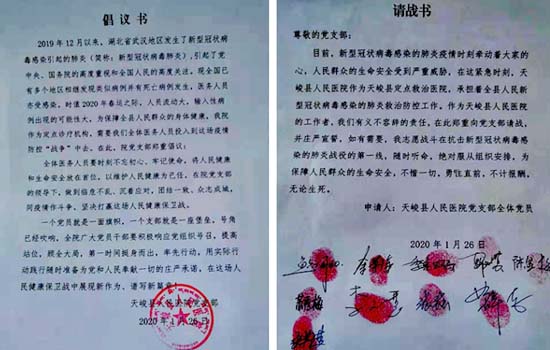 倡议书
2019 年 12 月以来，湖北省武汉地区发生了新型冠状病
毒感染引起的肺炎（简称：新型冠状病毒肺炎），引起了党
中央、国务院的高度重视和全国人民的高度关注。现全国已
有多个地区相继发现类似病例并有死亡病例发生，医务人员
亦受感染，时值 2020 年春运之际，人员流动大，输入性病
例出现的可能性大，为保障全县人民群众的身体健康，我院
作为定点诊疗机构，需要我们全体医务人员投入到这场疫情
防控“战争”中去。在此，院党支部郑重倡议：
全体医务人员要时刻不忘初心、牢记使命，将人民健康
和生命安全放在首位，以维护人民健康为已任，在院党支部
的领导下，做到临危不乱，沉着应对，团结一致，众志成城，
同疫情作斗争，坚决打赢这场人民健康保卫战。
一个党员就是一面旗帜，一个支部就是一座堡垒，号角
已经吹响，全院广大党员干部要积极响应党组织号召，提高
站位，顾全大局，第一时间挺身而出，率先行动，用实际行
动践行随时准备为党和人民奉献一切的庄严承诺，在这场人
民健康保卫战中展现新作为、谱写新篇章！
天峻县人民医院党支部
2020 年 1 月 26 日
请战书
尊敬的党支部：
目前，新型冠状病毒感染的肺炎疫情时刻牵动着大家的
心，人民群众的生命安全受到严重威胁，在这紧急时刻，天
峻县人民医院作为天峻县定点救治医院，承担着全县人民新
型冠状病毒感染的肺炎救治防控工作。作为天峻县人民医院
的工作者，我们有义不容辞的责任，在此郑重向党支部请战，
并庄严宣誓，如有需要，我志愿战斗在抗击新型冠状病毒感
染的肺炎战役的第一线，随时听命，绝对服从组织安排，为
保障人民群众的生命安全，不惜一切，勇往直前，不计报酬，
无论生死。
申请人：天峻县人民医院党支部全体党员
2020 年 1 月 26 日